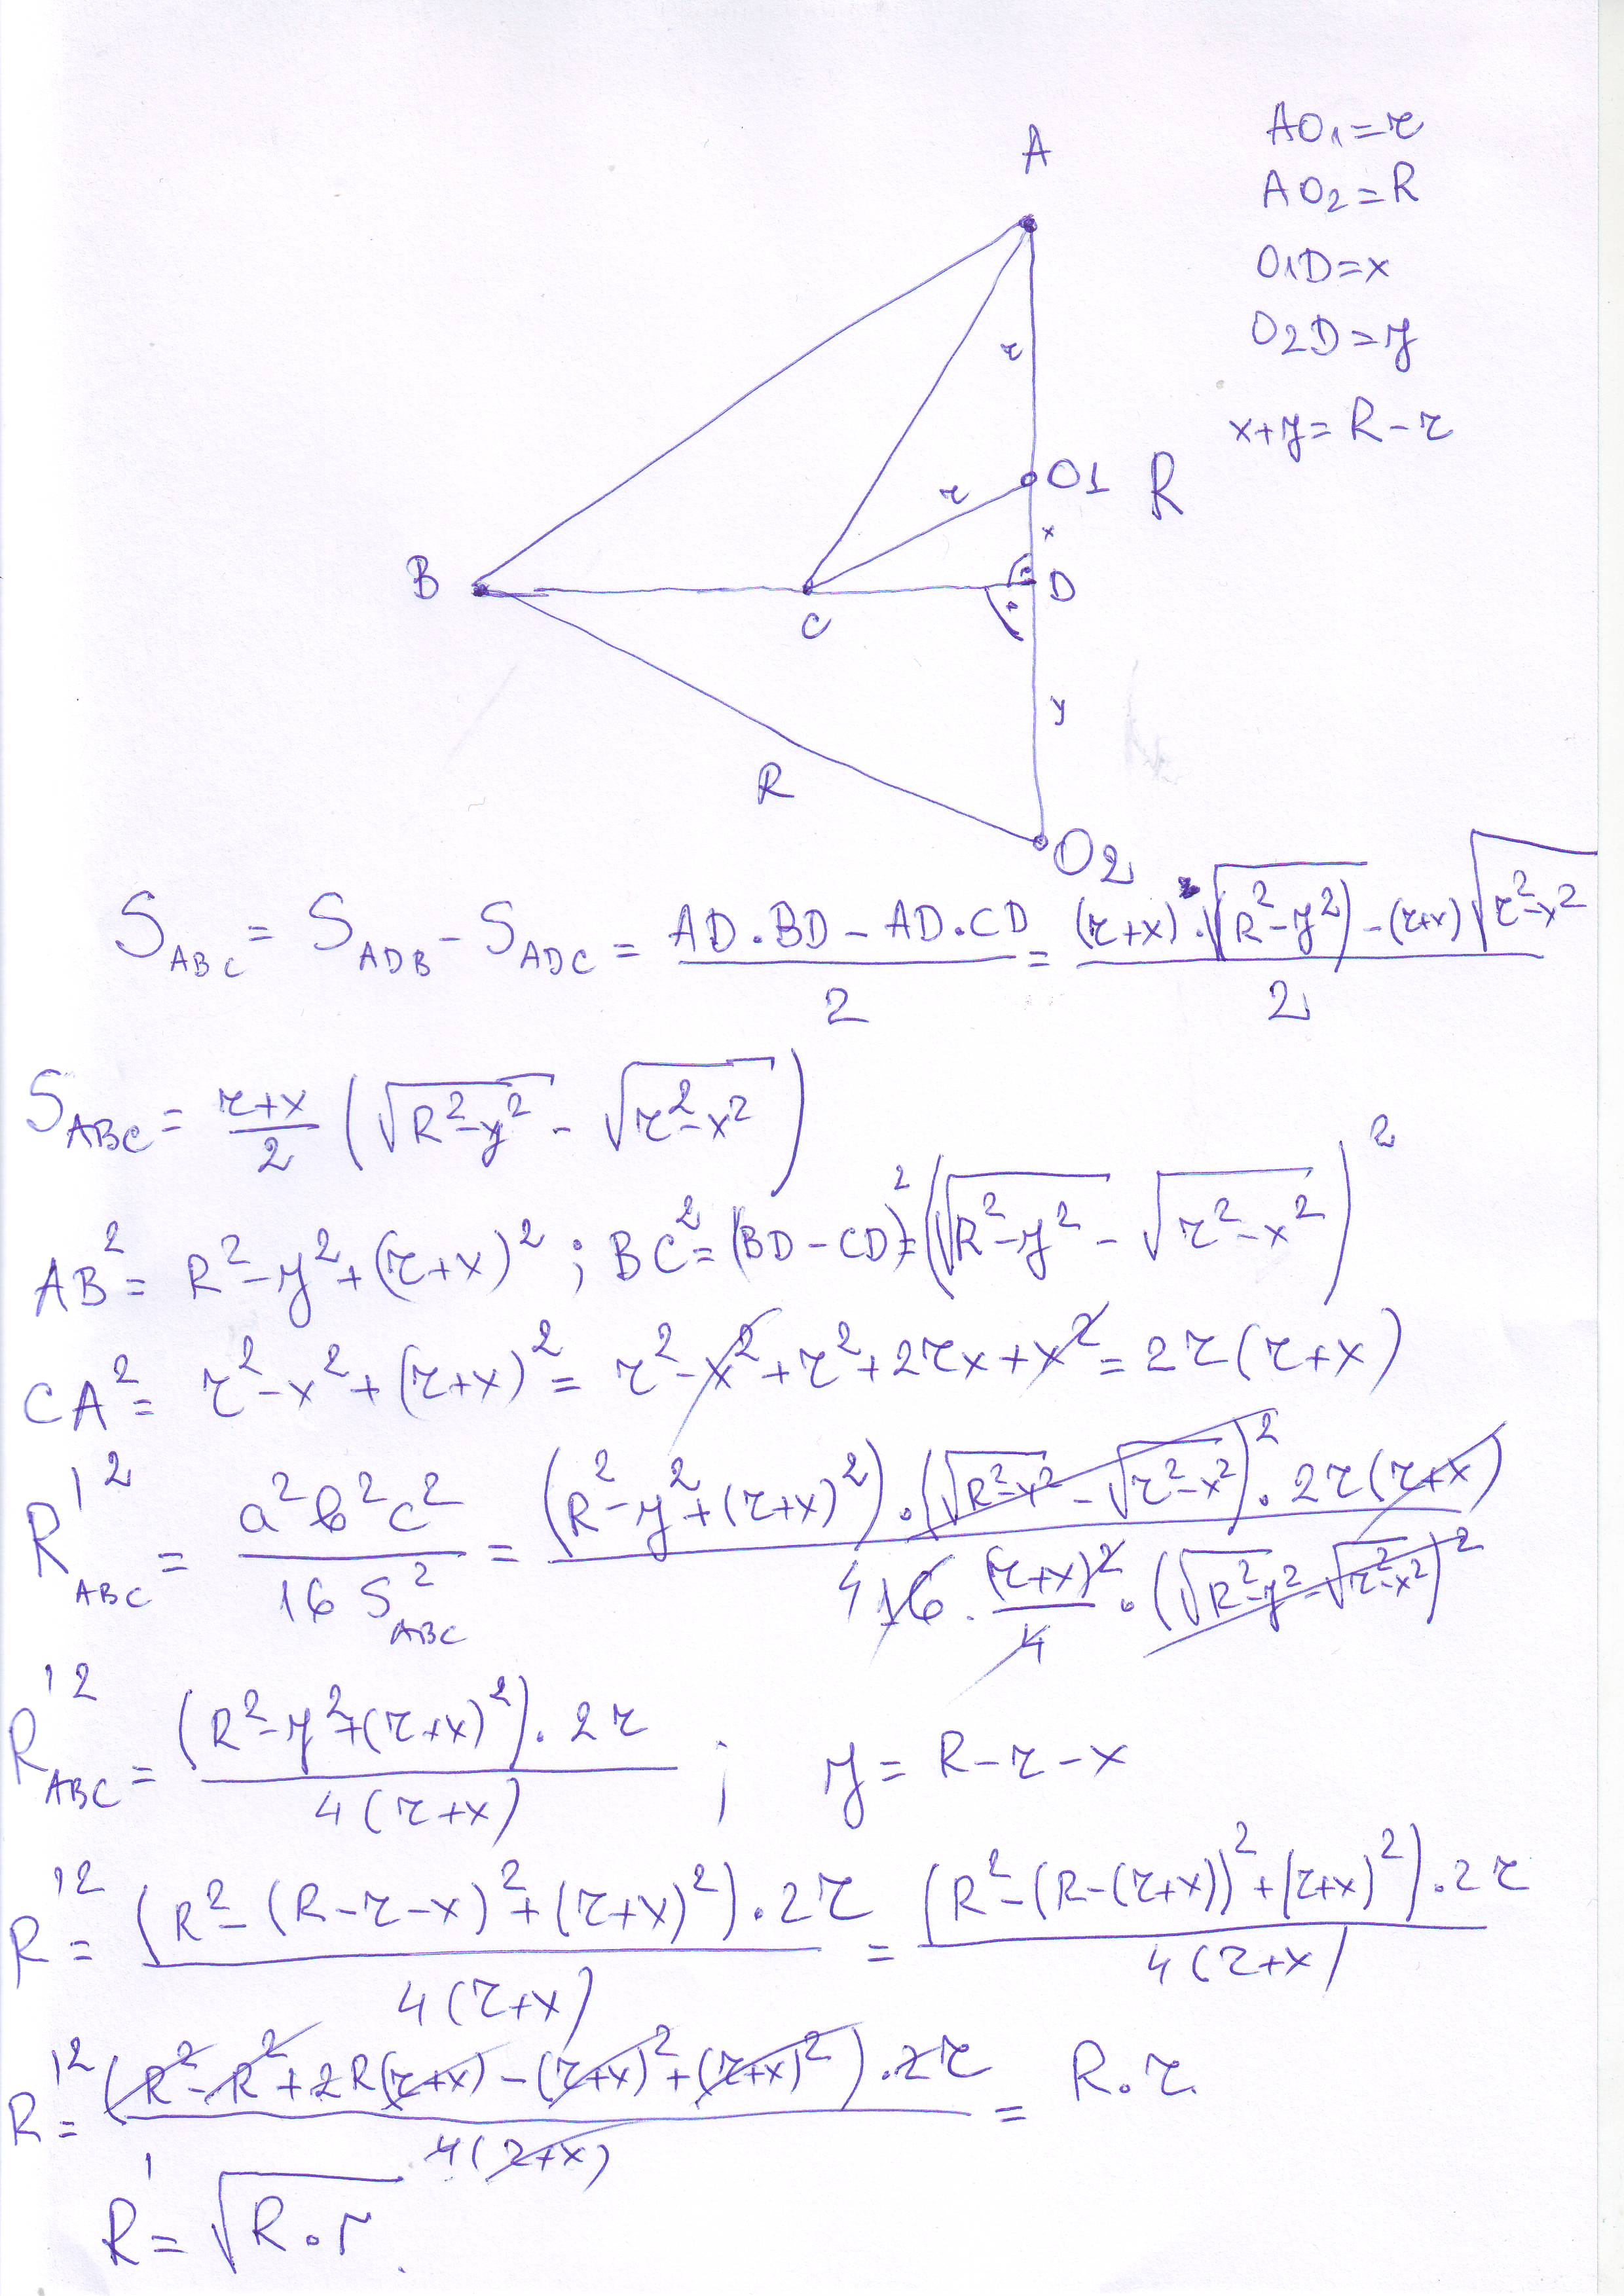 A
AO1=r
AO2=R
O1D=x
O2D=y
x+y=R-r
r
r
O1
R
x
B
C
D
y
R
O2
S_ABC = S_ADB - S_ADC = (AD.BD - AD.CD)/2 = ((r+x).√(R²-y²) - (r+x)√(r²-x²))/2
S_ABC = (r+x)/2 (√(R²-y²) - √(r²-x²))
AB² = R²-y²+(r+x)² ; BC² = (BD-CD)² = (√(R²-y²) - √(r²-x²))²
CA² = r²-x²+(r+x)² = r²-x²+r²+2rx+x² = 2r(r+x)
R'²_ABC = a²b²c²/16S²_ABC = ((R²-y²+(r+x)²).(√(R²-x²) - √(r²-x²))².2r(r+x))/(4 16.(r+x)²/4.(√(R²-y²) - √(r²-x²))²)
R'²_ABC = ((R²-y²+(r+x)²).2r)/(4(r+x)) ; y = R-r-x
R'² = ((R²-(R-r-x)²+(r+x)²).2r)/(4(r+x)) = ((R²-(R-(r+x))²+(r+x)²).2r)/(4(r+x))
R'² = ((R²-R²+2R(r+x)-(r+x)²+(r+x)²).2r)/(4(r+x)) = R.r
R' = √(R.r).